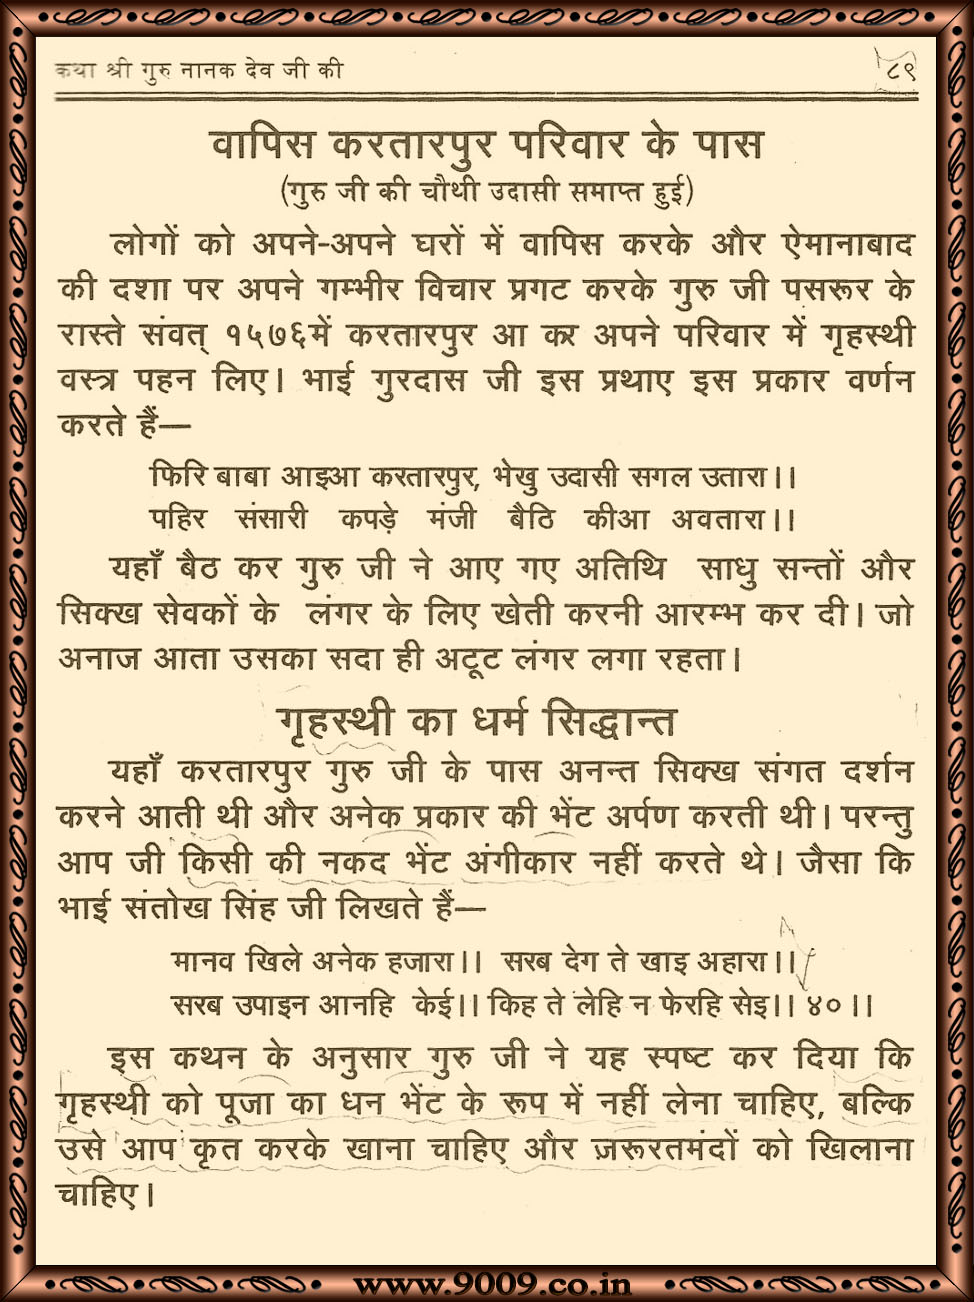 कथा श्री गुरु नानक देव जी की ८९
वापिस करतारपुर परिवार के पास
(गुरु जी की चौथी उदासी समाप्त हुई)
लोगों को अपने-अपने घरों में वापिस करके और ऐमानाबाद
की दशा पर अपने गम्भीर विचार प्रगट करके गुरु जी पसरूर के
रास्ते संवत् १५७६में करतारपुर आ कर अपने परिवार में गृहस्थी
वस्त्र पहन लिए। भाई गुरदास जी इस प्रथाए इस प्रकार वर्णन
करते हैं—
फिरि बाबा आइआ करतारपुर, भेखु उदासी सगल उतारा।।
पहिर संसारी कपड़े मंजी बैठि कीआ अवतारा।।
यहाँ बैठ कर गुरु जी ने आए गए अतिथि साधु सन्तों और
सिक्ख सेवकों के लंगर के लिए खेती करनी आरम्भ कर दी। जो
अनाज आता उसका सदा ही अटूट लंगर लगा रहता।
गृहस्थी का धर्म सिद्धान्त
यहाँ करतारपुर गुरु जी के पास अनन्त सिक्ख संगत दर्शन
करने आती थी और अनेक प्रकार की भेंट अर्पण करती थी। परन्तु
आप जी किसी की नकद भेंट अंगीकार नहीं करते थे। जैसा कि
भाई संतोख सिंह जी लिखते हैं—
मानव खिले अनेक हजारा।। सरब देग ते खाइ अहारा।।
सरब उपाइन आनहि केई।। किह ते लेहि न फेरहि सेइ।। ४०।।
इस कथन के अनुसार गुरु जी ने यह स्पष्ट कर दिया कि
गृहस्थी को पूजा का धन भेंट के रूप में नहीं लेना चाहिए, बल्कि
उसे आप कृत करके खाना चाहिए और ज़रूरतमंदों को खिलाना
चाहिए।
www.9009.co.in